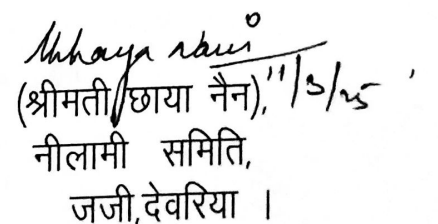 Chhaya Nain
(श्रीमती छाया नैन), 11/3/25
नीलामी समिति,
जजी,देवरिया ।